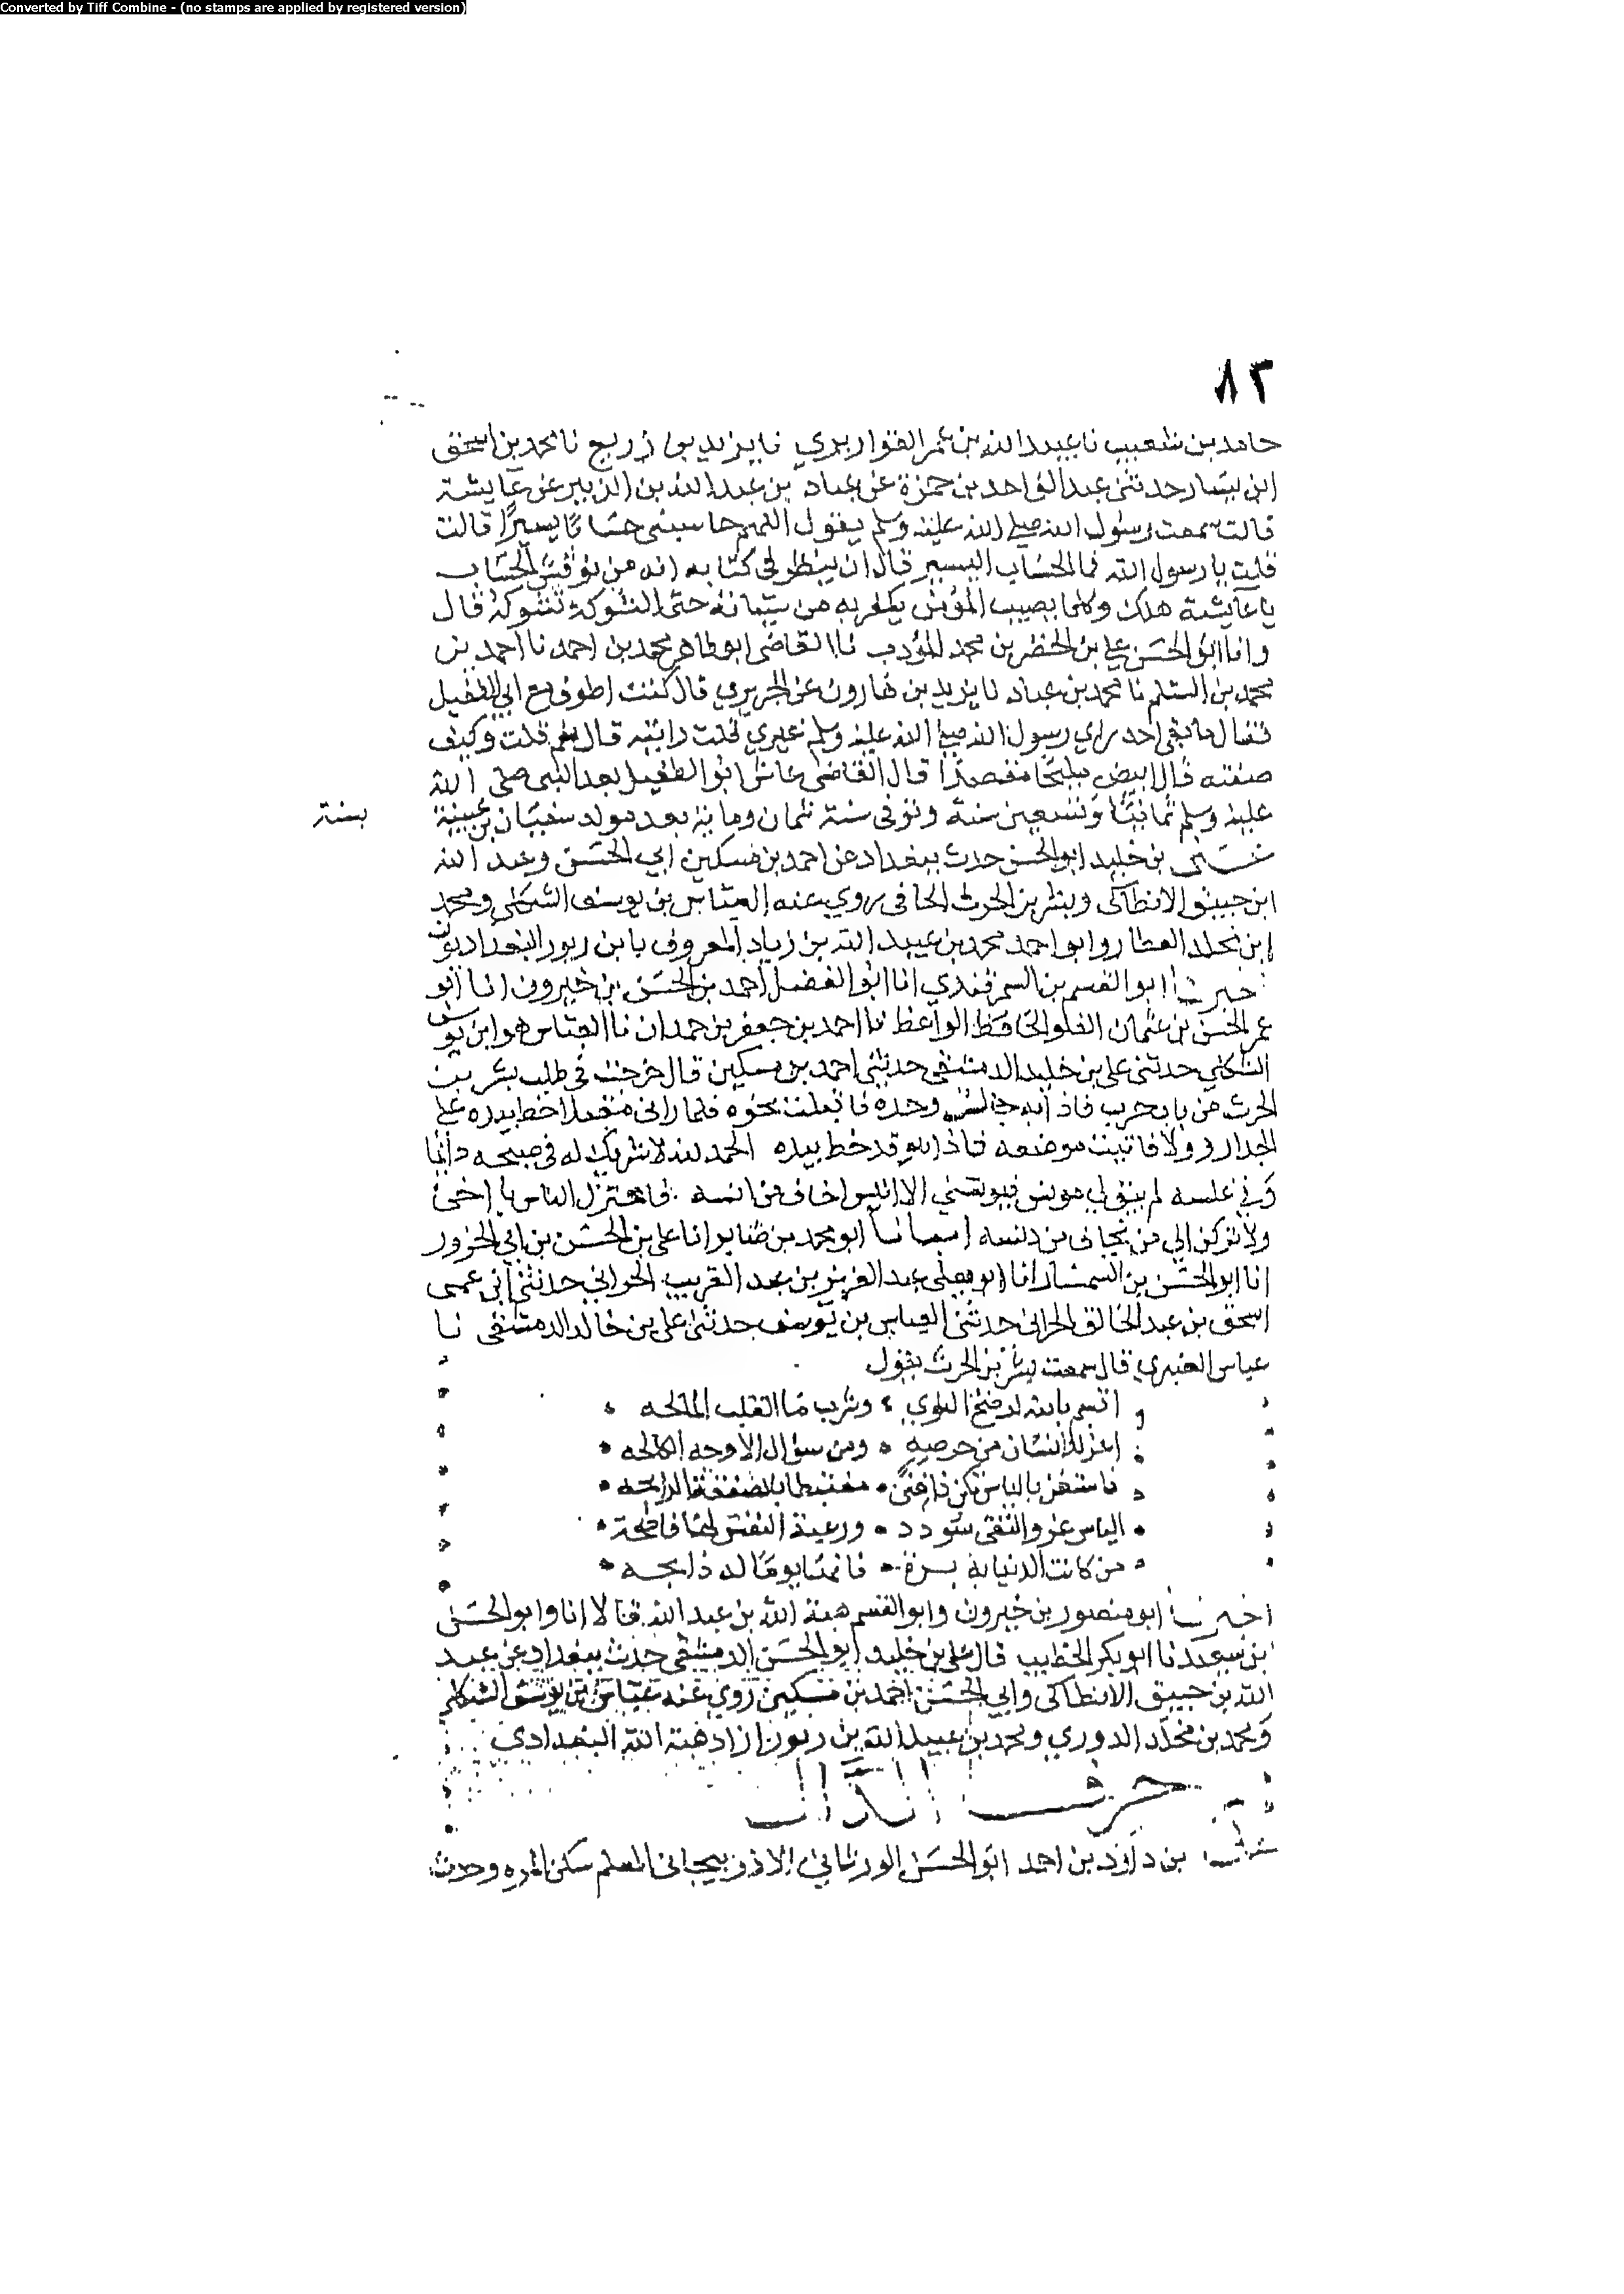 Converted by Tiff Combine - (no stamps are applied by registered version)
٨٣
حامد بن شعيب نا عبيد الله بن عمر القواريري نا يزيد بن زريع نا محمد بن اسحق
ابن يسار حدثني عبد الواحد بن حمزة عن عباد بن عبد الله بن الزبير عن عايشة
قالت سمعت رسول الله صلى الله عليه وسلم يقول اللهم حاسبني حسابا يسيرا قالت
قلت يا رسول الله فما الحساب اليسير قال ان ينظر في كتابه انه من نوقش الحساب
يا عايشة هلك وكلما يصيب المؤمن يكفر به من سيئاته حتى الشوكة تشوكة قال
وانا ابو الحسن علي بن الخضر بن محمد المؤدب نا القاضي ابو طاهر محمد بن احمد نا احمد بن
محمد بن السلم نا محمد بن عباد نا يزيد بن هارون عن الجريري قال كنت اطوف مع ابي الطفيل
فقال ما بقي احد راي رسول الله صلى الله عليه وسلم غيري قلت رايته قال نعم قلت وكيف
صفته قال ابيض مليحا مقصدا قال القاضي عاش ابو الطفيل بعد النبي صلى الله
عليه وسلم ثمانيا وتسعين سنة وتوفي سنة ثمان وماية بعد مولد سفيان بن عيينة
بسنة
بن خليد ابو الحسن حدث ببغداد عن احمد بن مسكين ابي الحسن وعبد الله
ابن خبيق الانطاكي وبشر بن الحرث الحافي روي عنه العباس بن يوسف الشكلي ومحمد
ابن مخلد العطار وابو احمد محمد بن عبيد الله بن زياد المعروف بابن زبورا البغداديون
اخبرنا ابو القسم بن السمرقندي انا ابو الفضل احمد بن الحسن بن خيرون انا ابو
عمر الحسن بن عثمان الفلو الحافظ الواعظ نا احمد بن جعفر بن حمدان نا العباس هو ابن يوسف
الشكلي حدثني علي بن خليد الدمشقي حدثني احمد بن مسكين قال خرجت في طلب بشر بن
الحرث من باب حرب فاذا به جالس وحده فاقبلت نحوه فلما راني مقبلا خط بيده على
الجدار وولا فاتيت موضعه فاذا هو قد خط بيده الحمد لله لا شريك له في صبحه دائما
وفي غلسه لم يبق لي مونس فيونسني الا انيس اخاف من انسه فاعتزل الناس يا اخي
ولا تركن الي من تخاف من دنسه انبانا ابو محمد بن صابر انا علي بن الحسن بن ابي الحزور
انا ابو الحسن بن السمسار انا ابو يعلى عبد العزيز بن عبد القريب الحراني حدثني ابي عمى
اسحق بن عبد الخالق الحراني حدثني العباس بن يوسف حدثني علي بن خالد الدمشقي نا
عباس العنبري قال سمعت بشر بن الحرث يقول
اقسم بالله لرضخ النوي وشرب ما القلب المالحه
اعز للانسان من حرصه ومن سؤال الاوجه الكالحه
فاستغن بالياس تكن ذا غنى مغتبطا بالصفقة الرابحه
الياس عز والتقى سودد ورغبة النفس لها فاضحة
من كانت الدنيا به برة فانها يوما له ذابحه
اخبرنا ابو منصور بن خيرون وابو القسم هبة الله بن عبد الله قالا انا وابو الحسن
بن سعيد نا ابو بكر الخطيب قال علي بن خليد ابو الحسن الدمشقي حدث ببغداد عن عبد
الله بن خبيق الانطاكي وابي الحسن احمد بن مسكين روي عنه عباس بن يوسف الشكلي
ومحمد بن مخلد الدوري ومحمد بن عبيد الله بن زبورا زاد هبة الله البغدادي
حرف الدال
بن داود بن احمد ابو الحسن الورثاني الاذربيجاني المعلم سكن المزه وحدث